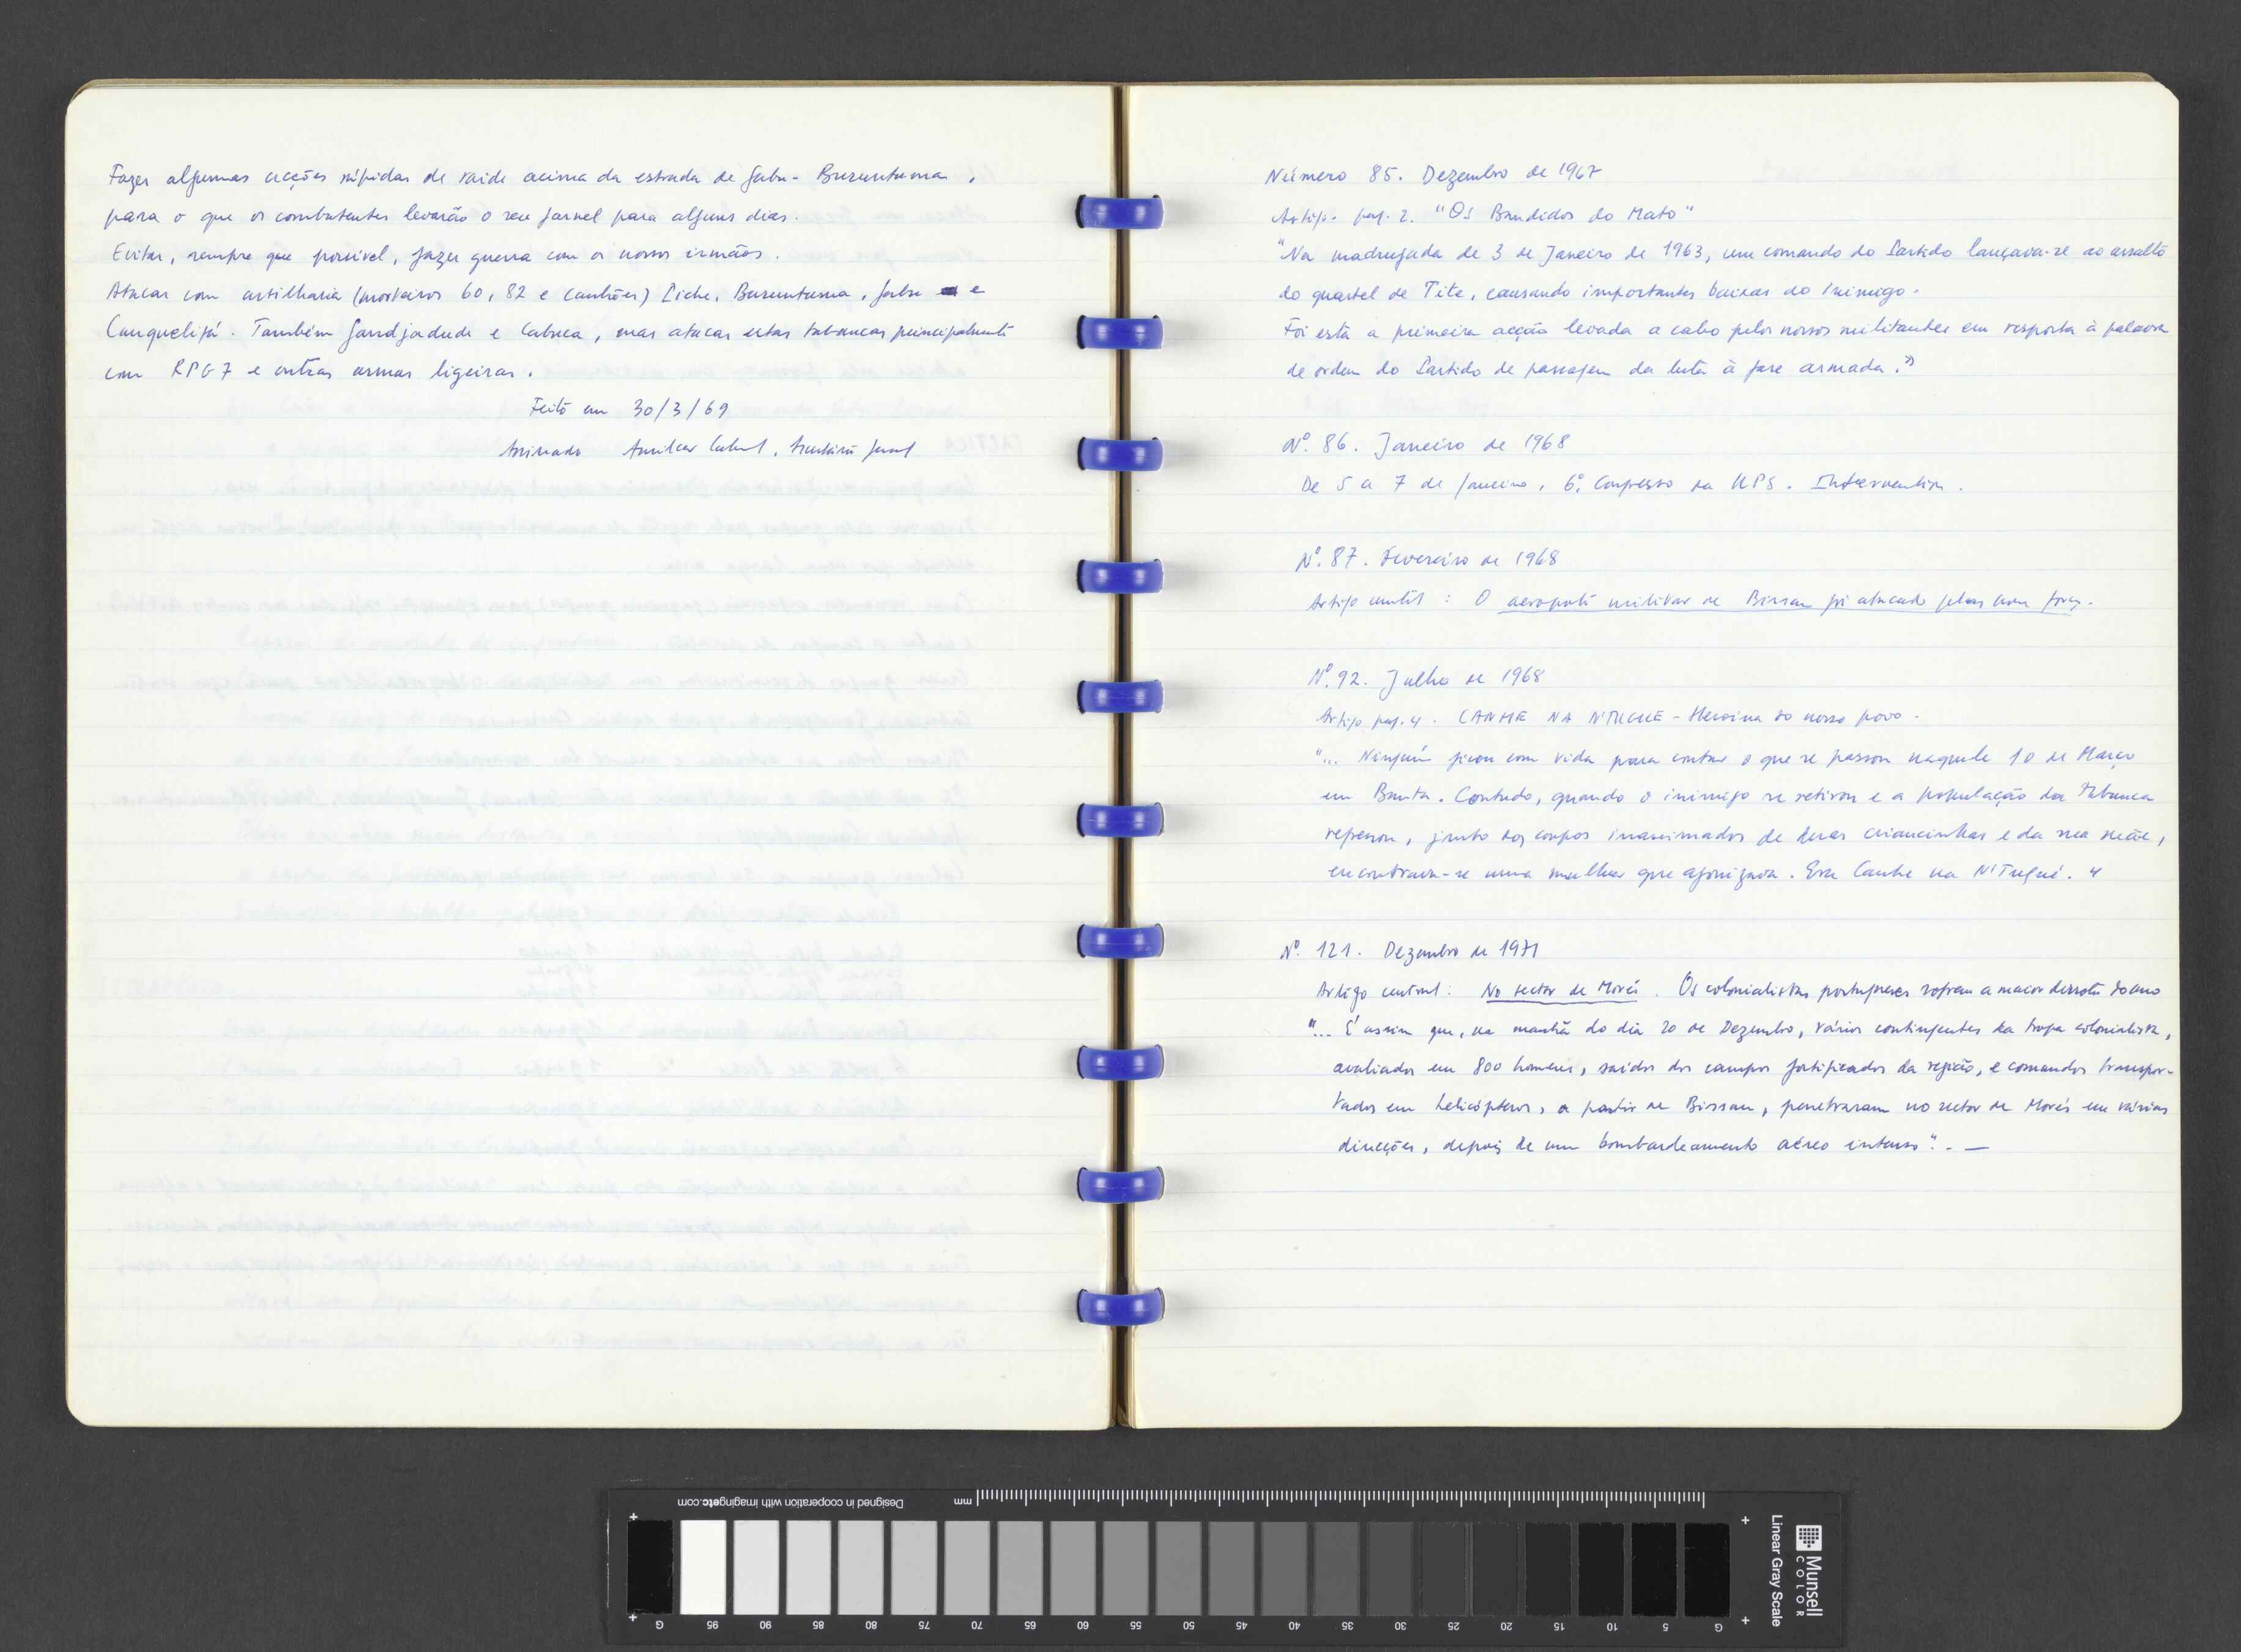 Fazer algumas acções rápidas de raide acima da estrada de Gabu - Buruntuma,
para o que os combatentes levarão o seu farnel para alguns dias.
Evitar, sempre que possível, fazer guerra com os nossos irmãos.
Atacar com artilharia (morteiros 60, 82 e canhões) Piche, Buruntuma, Gabu e
Canquelifá. Também Gandjadude e Cabuca, mas atacar estas tabancas principalmente
com RPG7 e outras armas ligeiras.
Feito em 30/3/69
Assinado Amilcar Cabral, Secretário Geral
Número 85. Dezembro de 1967
Artigo pag. 2. "Os Bandidos do Mato"
"Na madrugada de 3 de Janeiro de 1963, um comando do Partido lançava-se ao assalto
do quartel de Tite, causando importantes baixas ao inimigo.
Foi esta a primeira acção levada a cabo pelos nossos militantes em resposta à palavra
de ordem do Partido de passagem da luta à fase armada."
Nº. 86. Janeiro de 1968
De 5 a 7 de Janeiro, 6º. Congresso da UPS. Intervention.
Nº. 87. Fevereiro de 1968
Artigo central : O aeroporto militar de Bissau foi atacado pelas nossas forças.
Nº. 92. Julho de 1968
Artigo pag. 4. CANHE NA N'TUGUE - Heroina do nosso povo.
"... Ninguém ficou com vida para contar o que se passou naquele 10 de Março
em Banta. Contudo, quando o inimigo se retirou e a população da tabanca
regressou, junto dos corpos inanimados de duas criancinhas e da sua mãe,
encontrava-se uma mulher que agonizava. Era Canhe na N'Tugué. "
Nº. 121. Dezembro de 1971
Artigo central: No sector de Morés. Os colonialistas portugueses sofrem a maior derrota do ano
"... É assim que, na manhã do dia 20 de Dezembro, vários contingentes da tropa colonialista,
avaliados em 800 homens, saídos dos campos fortificados da região, e comandos transpor-
tados em helicópteros, a partir de Bissau, penetraram no sector de Morés em várias
direcções, depois de um bombardeamento aéreo intenso". —
Designed in cooperation with imagingetc.com
mm
G 95 90 85 80 75 70 65 60 55 50 45 40 35 30 25 20 15 10 5 G
Munsell
COLOR
Linear Gray Scale